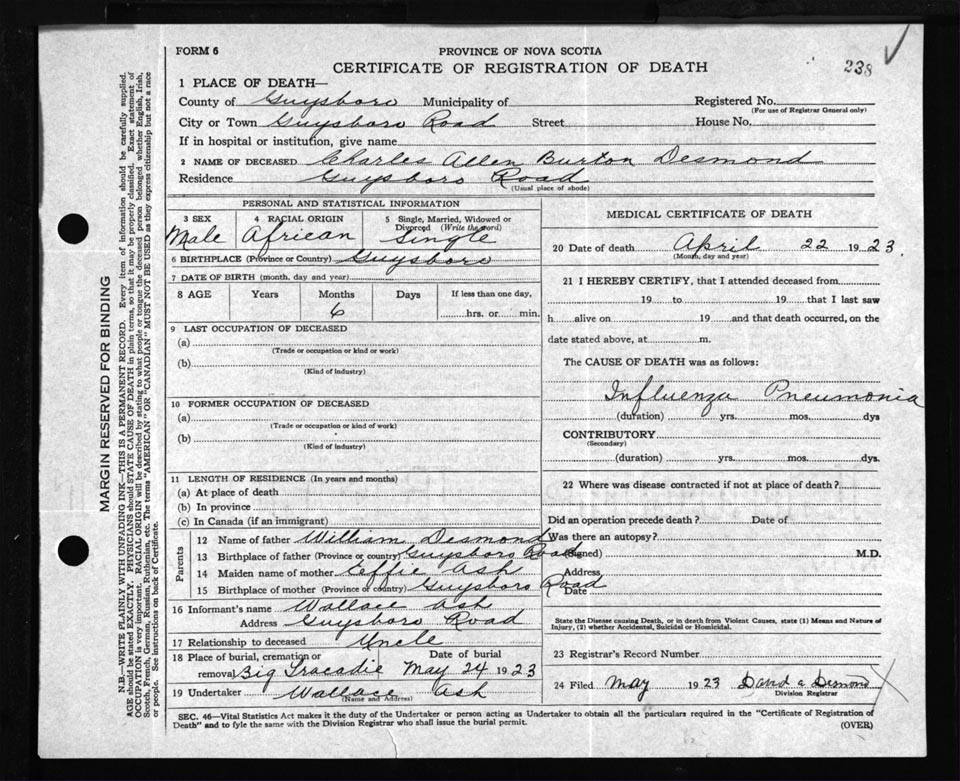 FORM 6
PROVINCE OF NOVA SCOTIA
238
CERTIFICATE OF REGISTRATION OF DEATH
1 PLACE OF DEATH—
County of Guysboro Municipality of Registered No.
(For use of Registrar General only)
City or Town Guysboro Road Street House No.
If in hospital or institution, give name
2 NAME OF DECEASED Charles Allen Burton Desmond
Residence Guysboro Road
(Usual place of abode)
PERSONAL AND STATISTICAL INFORMATION
3 SEX 4 RACIAL ORIGIN 5 Single, Married, Widowed or
Divorced (Write the word)
Male African Single
6 BIRTHPLACE (Province or Country) Guysboro
7 DATE OF BIRTH (month, day and year)
8 AGE Years Months Days If less than one day,
6 hrs. or min.
9 LAST OCCUPATION OF DECEASED
(a)
(Trade or occupation or kind or work)
(b)
(Kind of industry)
10 FORMER OCCUPATION OF DECEASED
(a)
(Trade or occupation or kind of work)
(b)
(Kind of industry)
11 LENGTH OF RESIDENCE (In years and months)
(a) At place of death
(b) In province
(c) In Canada (if an immigrant)
Parents
12 Name of father William Desmond
13 Birthplace of father (Province or country) Guysboro Road
14 Maiden name of mother Effie Ash
15 Birthplace of mother (Province or country) Guysboro Road
16 Informant's name Wallace Ash
Address Guysboro Road
17 Relationship to deceased Uncle
18 Place of burial, cremation or Date of burial
removal Big Tracadie May 24 1923
19 Undertaker Wallace Ash
(Name and Address)
MEDICAL CERTIFICATE OF DEATH
20 Date of death April 22 1923.
(Month, day and year)
21 I HEREBY CERTIFY, that I attended deceased from
19 to 19 that I last saw
h alive on 19 and that death occurred, on the
date stated above, at m.
The CAUSE OF DEATH was as follows:
Influenza Pneumonia
(duration) yrs. mos. dys
CONTRIBUTORY
(Secondary)
(duration) yrs. mos. dys.
22 Where was disease contracted if not at place of death?
Did an operation precede death? Date of
Was there an autopsy?
(Signed) M.D.
Address
Date
State the Disease causing Death, or in death from Violent Causes, state (1) Means and Nature of
Injury, (2) whether Accidental, Suicidal or Homicidal.
23 Registrar's Record Number
24 Filed May 1923 David A Desmond
Division Registrar
SEC. 46—Vital Statistics Act makes it the duty of the Undertaker or person acting as Undertaker to obtain all the particulars required in the "Certificate of Registration of
Death" and to fyle the same with the Division Registrar who shall issue the burial permit. (OVER)
MARGIN RESERVED FOR BINDING
N.B.—WRITE PLAINLY WITH UNFADING INK—THIS IS A PERMANENT RECORD. Every item of information should be carefully supplied.
AGE should be stated EXACTLY. PHYSICIANS should STATE CAUSE OF DEATH in plain terms, so that it may be properly classified. Exact statement of
OCCUPATION is very important. RACIAL ORIGIN will be described by stating to what people or tongue the deceased person belonged whether English, Irish,
Scotch, French, German, Russian, Ruthenian, etc. The terms "AMERICAN" OR "CANADIAN" MUST NOT BE USED as they express citizenship but not a race
or people. See instructions on back of Certificate.